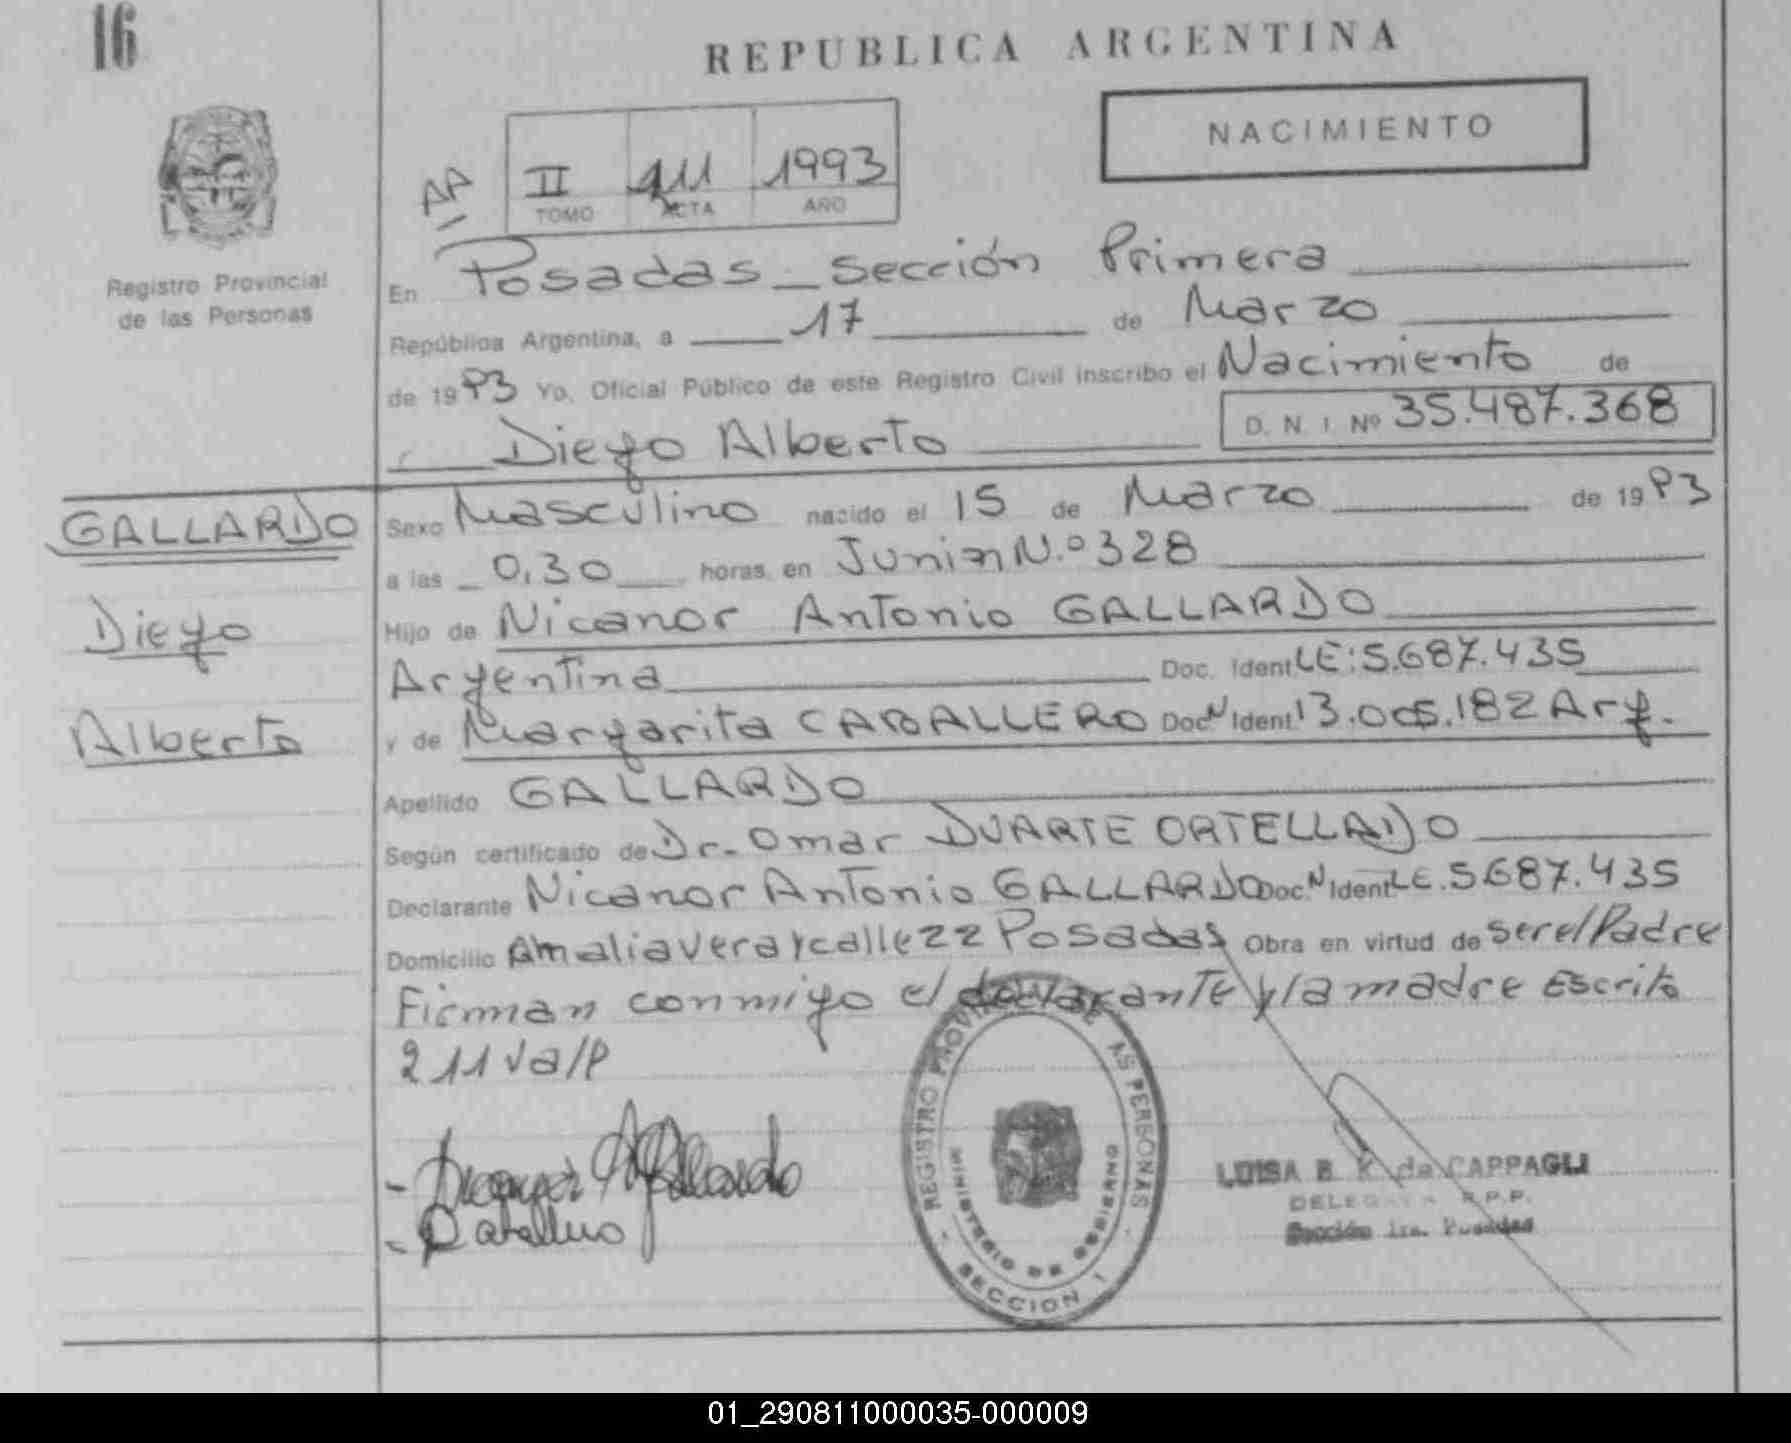 16
REPUBLICA ARGENTINA
NACIMIENTO
AP
II 1993
TOMO ACTA AÑO
Registro Provincial
de las Personas
En Posadas - Sección Primera
República Argentina, a 17 de Marzo
de 1993 Yo, Oficial Público de este Registro Civil inscribo el Nacimiento de
Diego Alberto D. N. I. Nº 35.487.368
GALLARDO
Diego
Alberto
Sexo Masculino nacido el 15 de Marzo de 1993
a las 0,30 horas, en Junin N.º 328
Hijo de Nicanor Antonio GALLARDO
Argentina Doc. Ident. LE: 5.687.435
y de Margarita CABALLERO Doc. N Ident. 13.005.182 Arg.
Apellido GALLARDO
Según certificado de Dr. Omar DUARTE ORTELLADO
Declarante Nicanor Antonio GALLARDO Doc. N Ident. LE. 5.687.435
Domicilio Amalia Vera y calle 22 Posadas Obra en virtud de ser el Padre
Firman conmigo el declarante y la madre Escrito
211 Va/P
Gallardo
Caballero
REGISTRO PROVINCIAL DE LAS PERSONAS
MINISTERIO DE GOBIERNO
SECCION I
LUISA B. K. de CAPPAGLI
DELEGADA R.P.P.
Sección 1ra. Posadas
01_290811000035-000009